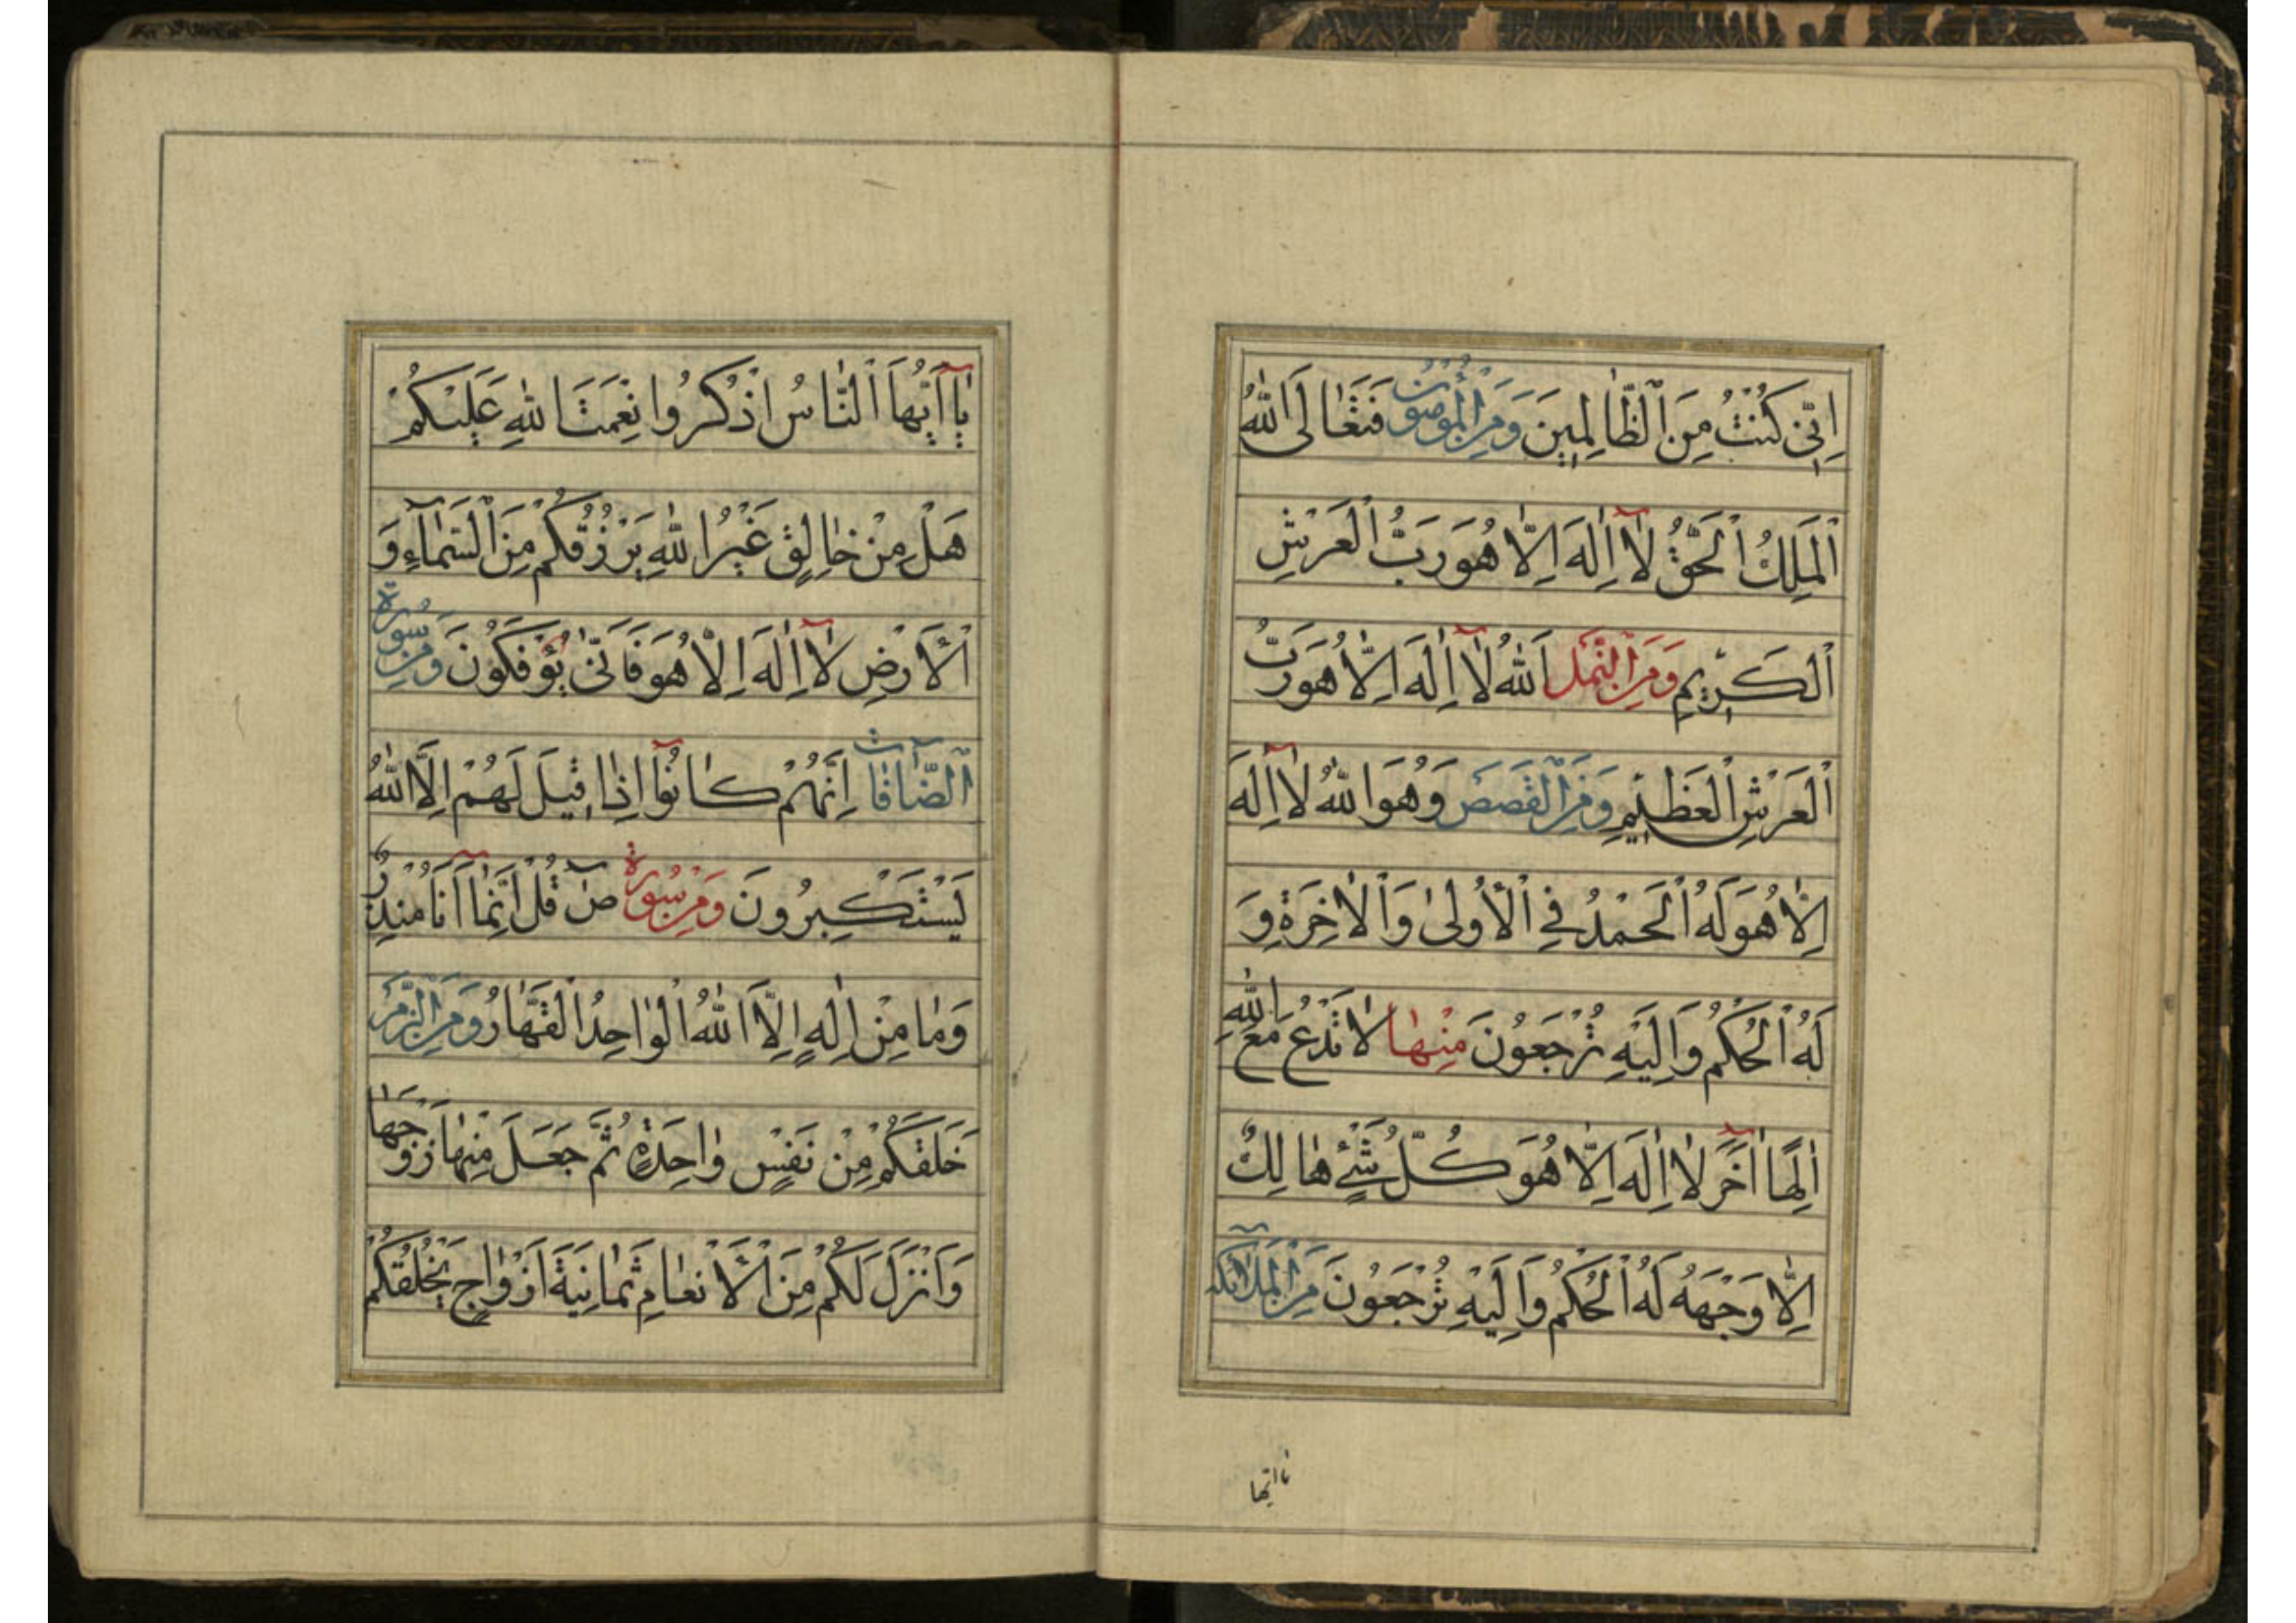 اِنّي كُنْتُ مِنَ ٱلظّالِمينَ وَمِنَ ٱلْمُؤْمِنُونَ فَتَعٰالَى ٱللهُ
ٱلْمَلِكُ ٱلْحَقُّ لٰآ اِلٰهَ اِلّٰا هُوَ رَبُّ ٱلْعَرْشِ
ٱلْكَريمِ وَمِنَ ٱلنَّمْلِ اَللهُ لٰآ اِلٰهَ اِلّٰا هُوَ رَبُّ
ٱلْعَرْشِ ٱلْعَظيمِ وَمِنَ ٱلْقَصَصِ وَهُوَ ٱللهُ لٰآ اِلٰهَ
اِلّٰا هُوَ لَهُ ٱلْحَمْدُ فِي ٱلْأُولىٰ وَٱلْاٰخِرَةِ وَ
لَهُ ٱلْحُكْمُ وَاِلَيْهِ تُرْجَعُونَ مِنْهٰا لٰا تَدْعُ مَعَ ٱللهِ
اِلٰهًا اٰخَرَ لٰا اِلٰهَ اِلّٰا هُوَ كُلُّ شَيْءٍ هٰالِكٌ
اِلّٰا وَجْهَهُ لَهُ ٱلْحُكْمُ وَاِلَيْهِ تُرْجَعُونَ مِنَ ٱلْمَلٰٓائكه
يٰآ اَيُّهَا ٱلنّٰاسُ اذْكُرُوا نِعْمَتَ ٱللهِ عَلَيْكُمْ
هَلْ مِنْ خٰالِقٍ غَيْرُ ٱللهِ يَرْزُقُكُمْ مِنَ ٱلسَّمٰآءِ وَ
ٱلْأَرْضِ لٰآ اِلٰهَ اِلّٰا هُوَ فَاَنّىٰ تُؤْفَكُونَ وَمِنْ سُورة
ٱلصّٰآفّٰات اِنَّهُمْ كٰانُوٓا اِذٰا قيلَ لَهُمْ اِلَّا ٱللهُ
يَسْتَكْبِرُونَ وَمِنْ سُورَة صٓ قُلْ اِنَّمٰآ اَنَا مُنْذِرٌ
وَمٰا مِنْ اِلٰهٍ اِلَّا ٱللهُ ٱلْوٰاحِدُ ٱلْقَهّٰارُ وَمِنَ ٱلزُّمَر
خَلَقَكُمْ مِنْ نَفْسٍ وٰاحِدَةٍ ثُمَّ جَعَلَ مِنْهٰا زَوْجَهٰا
وَاَنْزَلَ لَكُمْ مِنَ ٱلْأَنْعٰامِ ثَمٰانِيَةَ اَزْوٰاجٍ يَخْلُقُكُمْ